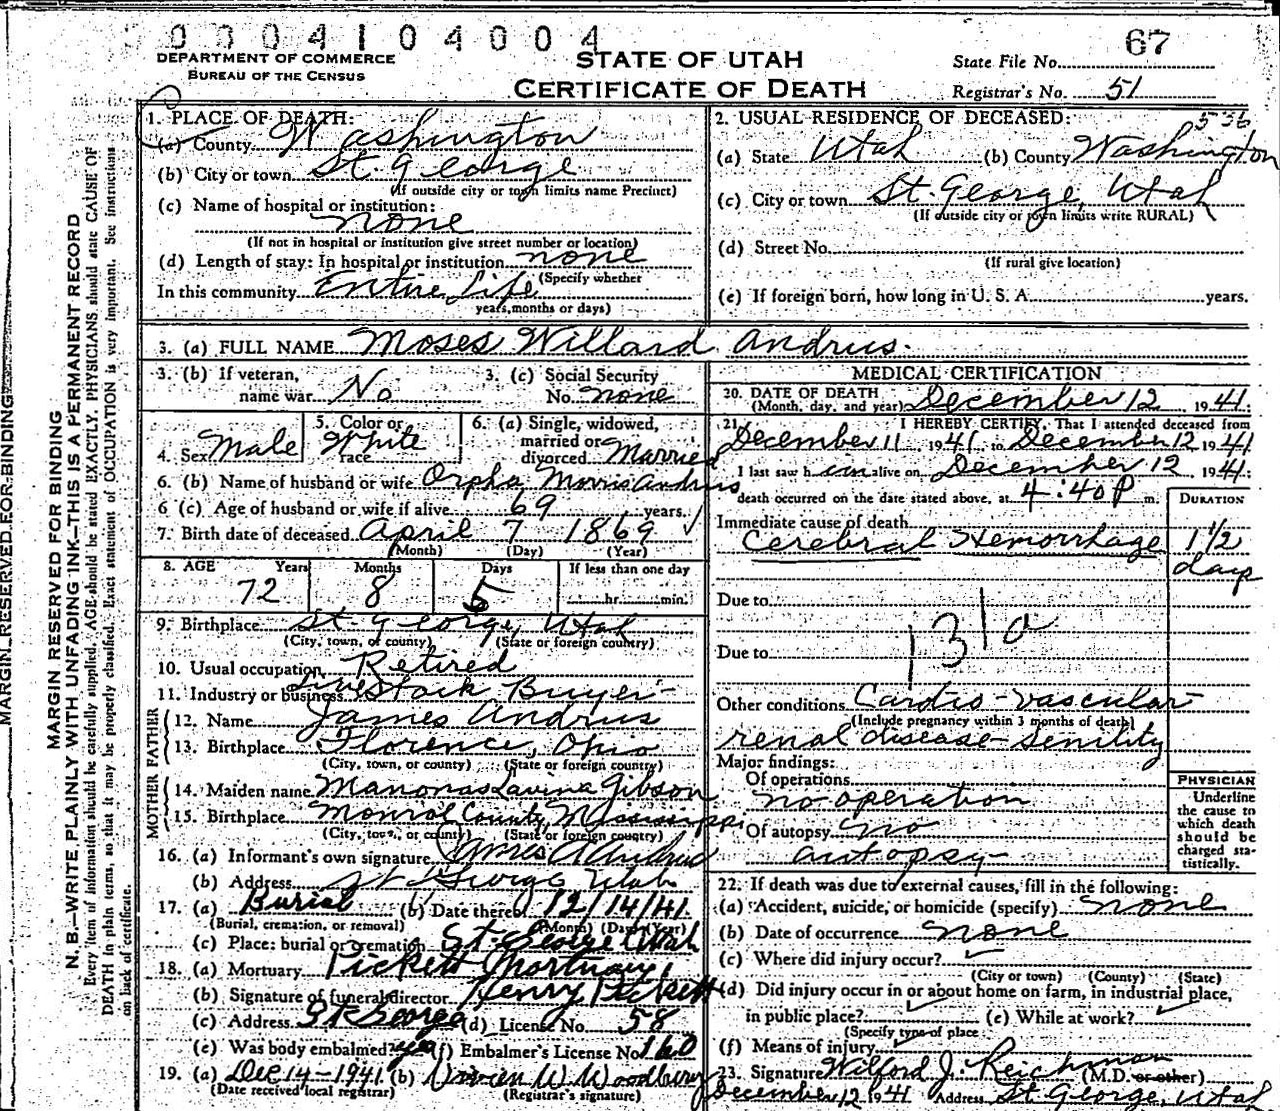 0004104004
67
DEPARTMENT OF COMMERCE
BUREAU OF THE CENSUS
STATE OF UTAH
CERTIFICATE OF DEATH
State File No.
Registrar's No. 51
1. PLACE OF DEATH:
(a) County Washington
(b) City or town St. George
(If outside city or town limits name Precinct)
(c) Name of hospital or institution:
none
(If not in hospital or institution give street number or location)
(d) Length of stay: In hospital or institution none
(Specify whether
In this community Entire Life
years, months or days)
2. USUAL RESIDENCE OF DECEASED: 536
(a) State Utah (b) County Washington
(c) City or town St. George, Utah
(If outside city or town limits write RURAL)
(d) Street No.
(If rural give location)
(e) If foreign born, how long in U. S. A. years.
3. (a) FULL NAME Moses Willard Andrus.
3. (b) If veteran,
name war No
3. (c) Social Security
No. none
4. Sex Male
5. Color or
race White
6. (a) Single, widowed,
married or
divorced Married
6. (b) Name of husband or wife Orpha Morris Andrus
6 (c) Age of husband or wife if alive 69 years.
7. Birth date of deceased April 7 1869
(Month) (Day) (Year)
8. AGE Years Months Days If less than one day
72 8 5 hr. min.
9. Birthplace St. George, Utah
(City, town, or county) (State or foreign country)
10. Usual occupation Retired
11. Industry or business Live Stock Buyer
FATHER
12. Name James Andrus
13. Birthplace Florence, Ohio
(City, town, or county) (State or foreign country)
MOTHER
14. Maiden name Manonas Lavina Gibson
15. Birthplace Monroe County, Mississippi
(City, town, or county) (State or foreign country)
16. (a) Informant's own signature James A Andrus
(b) Address St George Utah
17. (a) Burial (b) Date thereof 12/14/41
(Burial, cremation, or removal) (Month) (Day) (Year)
(c) Place: burial or cremation St. George Utah
18. (a) Mortuary Pickett Mortuary
(b) Signature of funeral director Henry Pickett
(c) Address St George (d) License No. 58
(e) Was body embalmed? yes (f) Embalmer's License No. 160
19. (a) Dec 14-1941 (b) W. Woodbury
(Date received local registrar) (Registrar's signature)
MEDICAL CERTIFICATION
20. DATE OF DEATH
(Month, day, and year) December 12 1941.
21. I HEREBY CERTIFY, That I attended deceased from
December 11 1941 to December 12 1941
I last saw him alive on December 12 1941.
death occurred on the date stated above, at 4:40 P m.
DURATION
Immediate cause of death
Cerebral Hemorrhage 1 1/2
days
Due to
131a
Due to
Other conditions Cardio-vascular
(Include pregnancy within 3 months of death)
renal disease - Senility
Major findings:
Of operations
no operation
Of autopsy no
autopsy
PHYSICIAN
Underline
the cause to
which death
should be
charged sta-
tistically.
22. If death was due to external causes, fill in the following:
(a) Accident, suicide, or homicide (specify) none
(b) Date of occurrence none
(c) Where did injury occur?
(City or town) (County) (State)
(d) Did injury occur in or about home on farm, in industrial place,
in public place? (e) While at work?
(Specify type of place
(f) Means of injury
23. Signature Wilford J. Reichman (M.D. or other)
December 12 1941 Address St George, Utah
MARGIN RESERVED FOR BINDING
MARGIN RESERVED FOR BINDING
N. B.—WRITE PLAINLY WITH UNFADING INK—THIS IS A PERMANENT RECORD
Every item of information should be carefully supplied. AGE should be stated EXACTLY. PHYSICIANS should state CAUSE OF
DEATH in plain terms, so that it may be properly classified. Exact statement of OCCUPATION is very important. See instructions
on back of certificate.